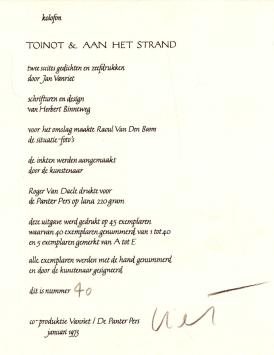 kolofon
TOINOT & AAN HET STRAND
twee suites gedichten en zeefdrukken
door Jan Vanriet
schrifturen en design
van Herbert Binneweg
voor het omslag maakte Raoul Van Den Boom
de situatie-foto's
de inkten werden aangemaakt
door de kunstenaar
Roger Van Daele drukte voor
de Panter Pers op lana 220 gram
deze uitgave werd gedrukt op 45 exemplaren
waarvan 40 exemplaren genummerd van 1 tot 40
en 5 exemplaren gemerkt van A tot E
alle exemplaren werden met de hand genummerd
en door de kunstenaar gesigneerd
dit is nummer 40
co-produktie Vanriet / De Panter Pers
januari 1973